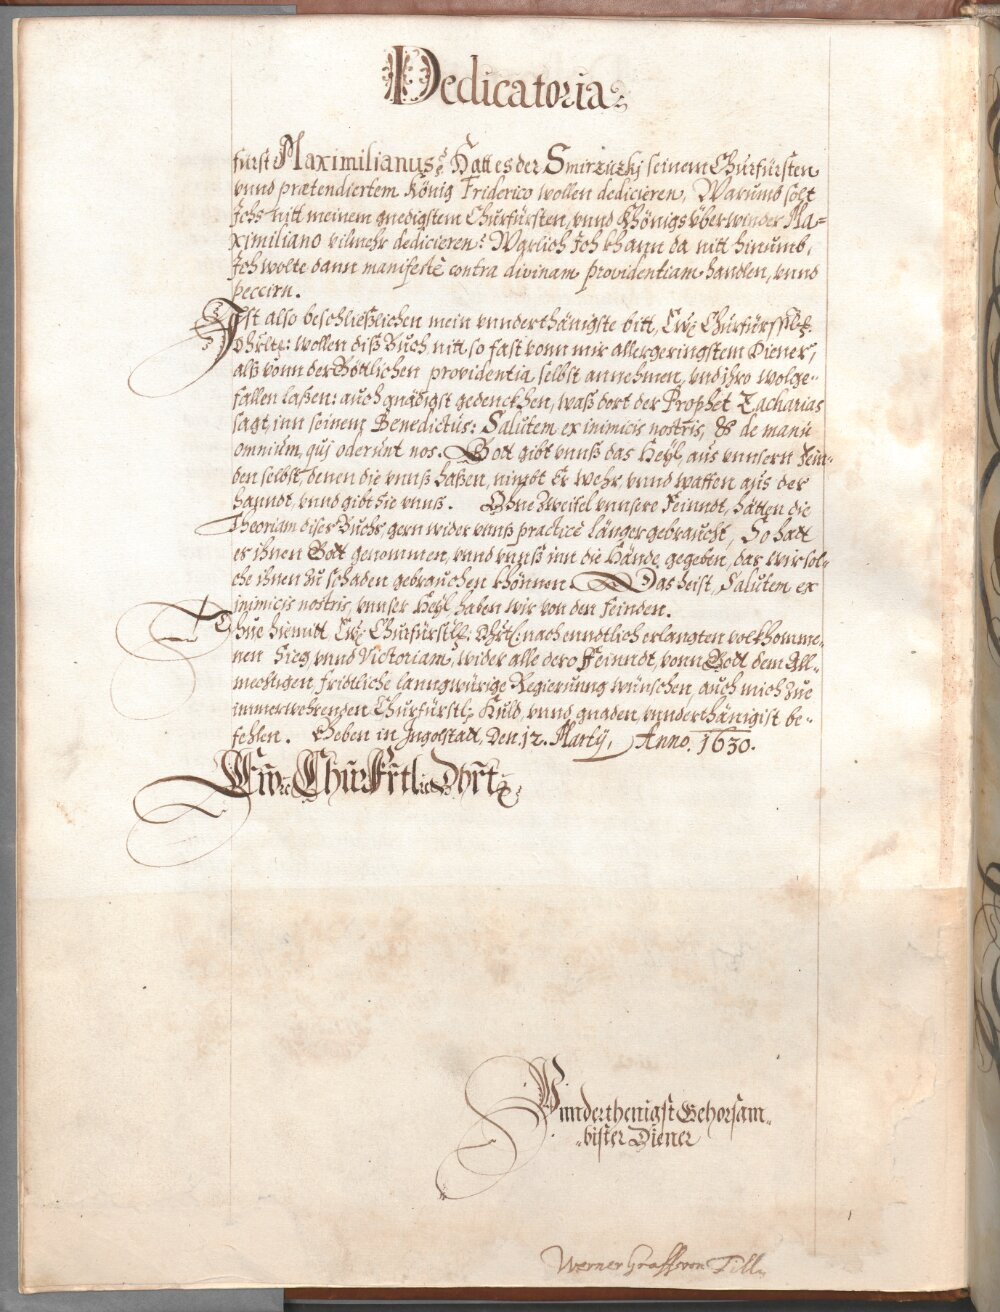 Dedicatoria.
fürst Maximilianus? Hatt es der Smirzützkj seinem Churfürsten
vnnd prætendiertem König Friderico wollen dedicieren, Warumb solt
Ichs nitt meinem gnedigstem Churfürsten, vnnd Khönigs überwinder Ma=
ximiliano vilmehr dedicieren? Warlich Ich khann da nitt hinumb,
Ich wolte dann manifestè contra divinam providentiam handlen, vnnd
peccirn.
Ist also beschließlichen mein vnnderthänigste bitt, Ew: Churfürstl:
Dhrltt: wollen diß Buch nitt so fast vonn mir allergeringstem Diener,
alß vonn der Göttlichen providentia selbst annehmen, vnd ihro wolge=
fallen laßen: auch gnädigst gedenckhen, waß dort der Prophet Zacharias
sagt, inn seinem Benedictus: Salutem ex inimicis nostris, & de manu
omnium, quj oderunt nos. Gott gibt vnnß das Heÿl, aus vnnsern Fein=
den selbst, denen die vnnß haßen, nimbt Er wehr, vnnd waffen aus der
hanndt, vnnd gibt sie vnnß. Ohne Zweifel vnnsere Feinndt, hätten die
Theoriam diser Buchs, gern wider vnnß practicè länger gebraucht, So hatt
er ihnen Gott genommen, vnnd vnnß inn die Hände gegeben, dar wir sol=
che ihnen zu schaden gebrauchen khönnen. Das heist, Salutem ex
inimicis nostris, vnnser Heÿl haben wir von den feinden.
Thue hiemitt Ew: Churfürstl: Dhrtl: nach enndtlich erlangten volkhomme=
nen Sieg, vnnd Victoriam, wider alle dero Feinndt, vonn Gott dem All=
mechtigen, fridtliche lanngwürige Regierung wünschen, auch mich zue
immerwehrenden Churfürstl: Huld, vnnd gnaden, vnnderthänigist be=
fehlen. Geben in Ingolstatt, Den 12. Martij, Anno. 1630.
Ewre Churfrtl: Dhrt:
Vnnderthenigst Gehorsam=
=bister Diener
Werner Graff von Tilly